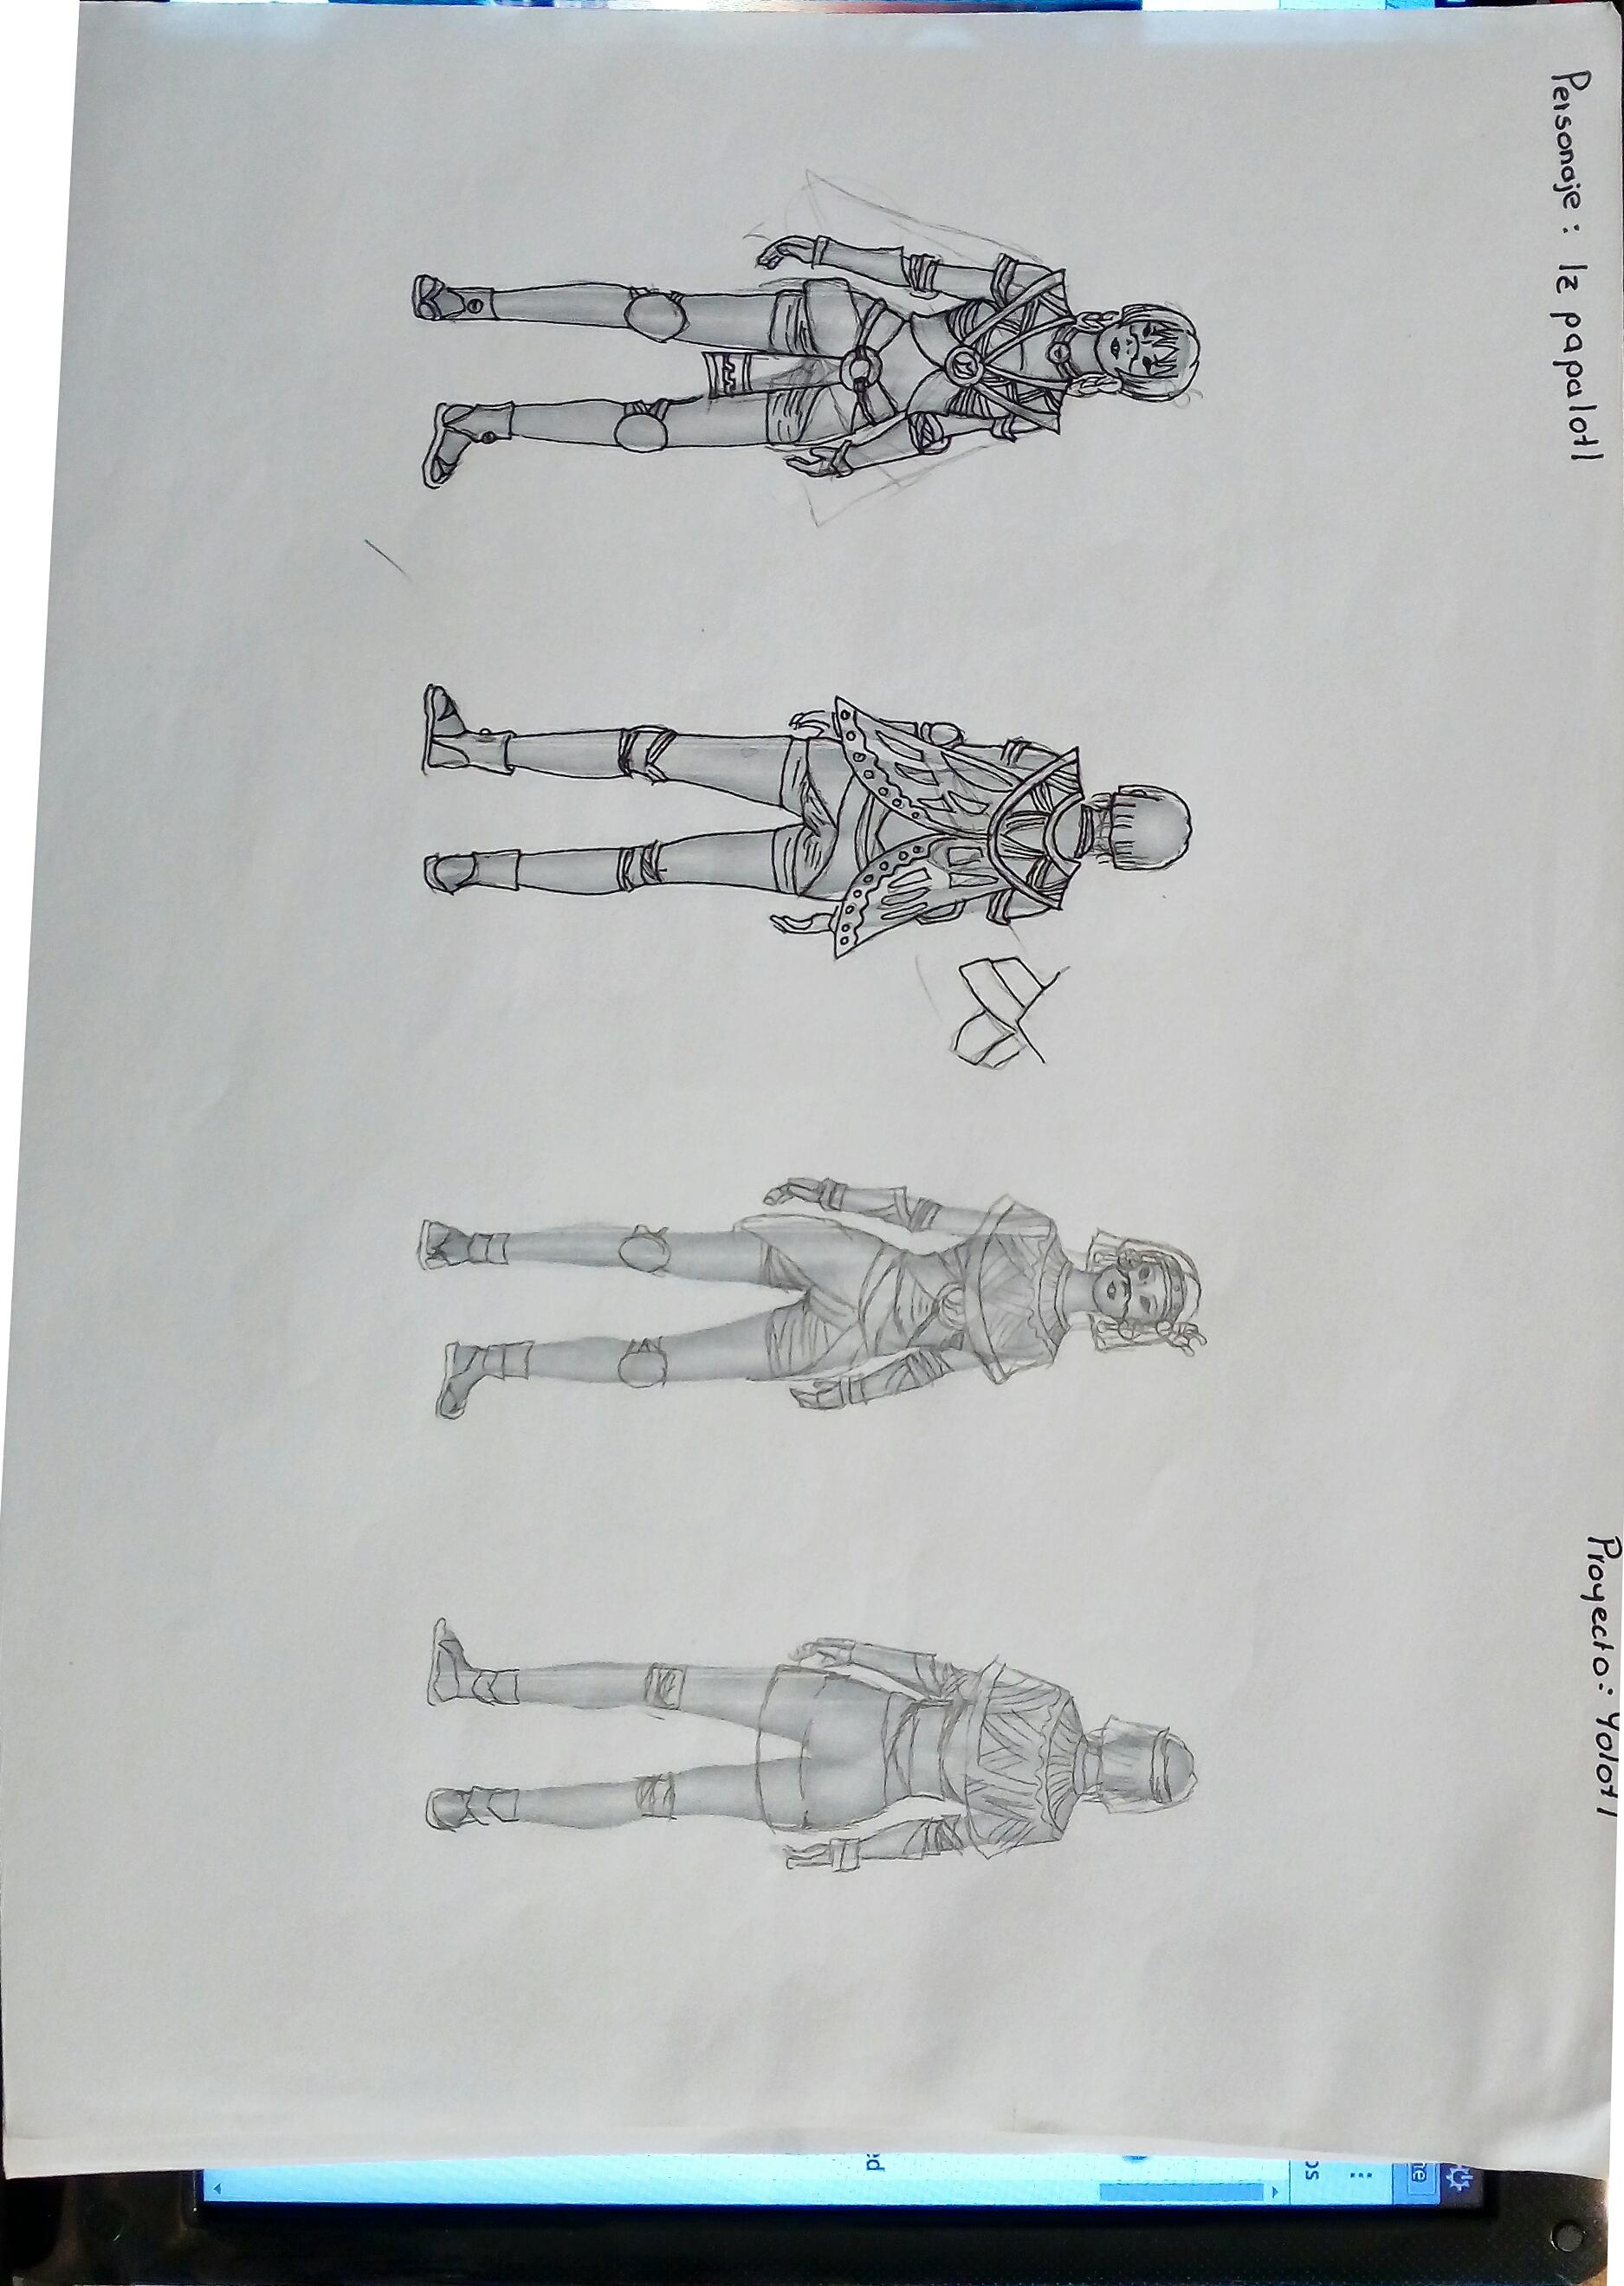 Personaje: Iz papalotl
Proyecto: Yolotl